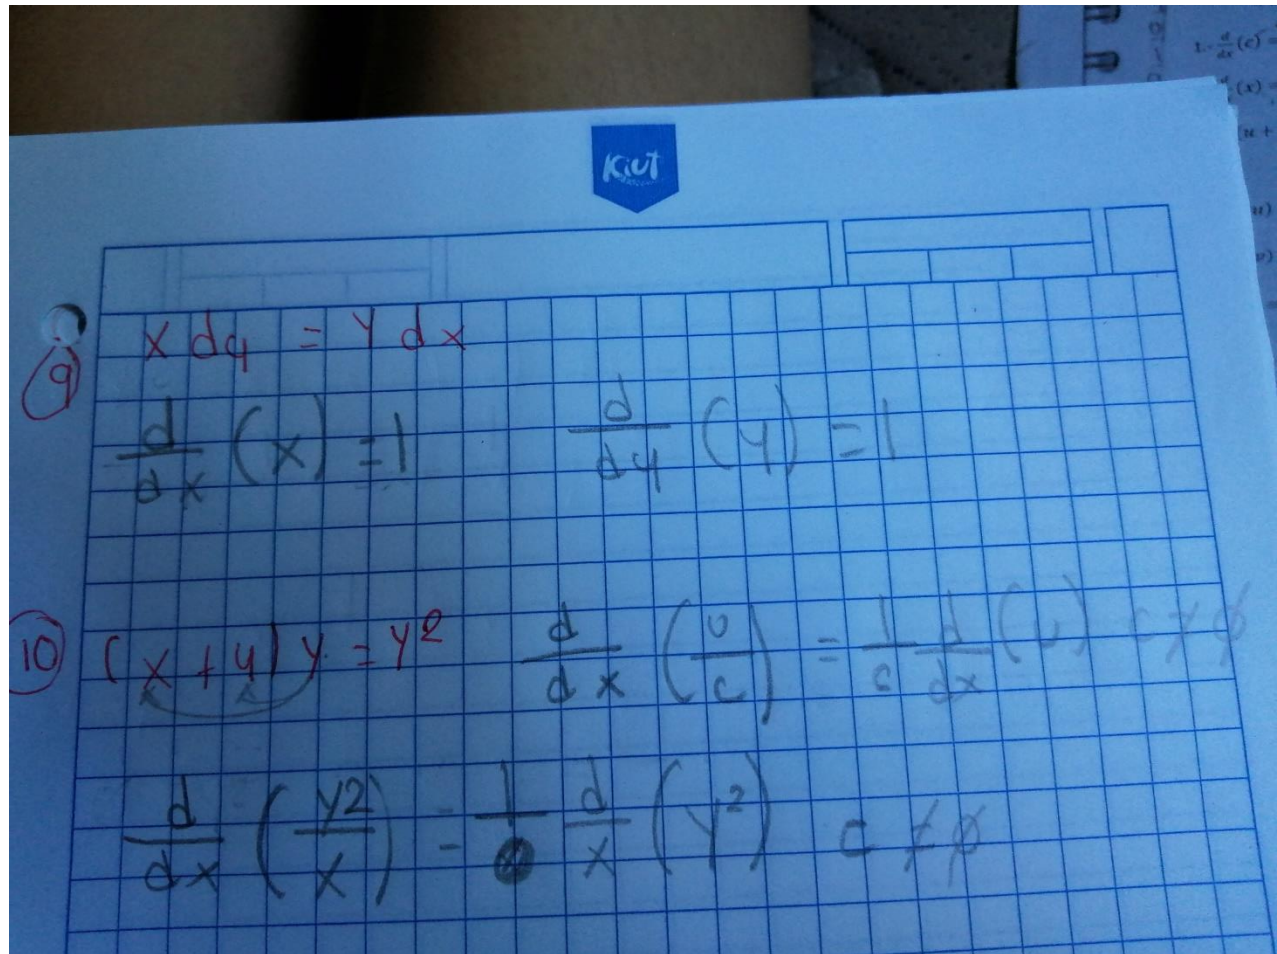 Kiut
1.- d/dx (c) =
(x) =
(u +
u)
v)
9 x dy = y dx
d/dx (x) = 1    d/dy (y) = 1
10 (x + y) y = y2    d/dx (u/c) = 1/c d/dx (u) c ≠ 0
d/dx (y2/x) = 1/x d/x (y²) c ≠ 0